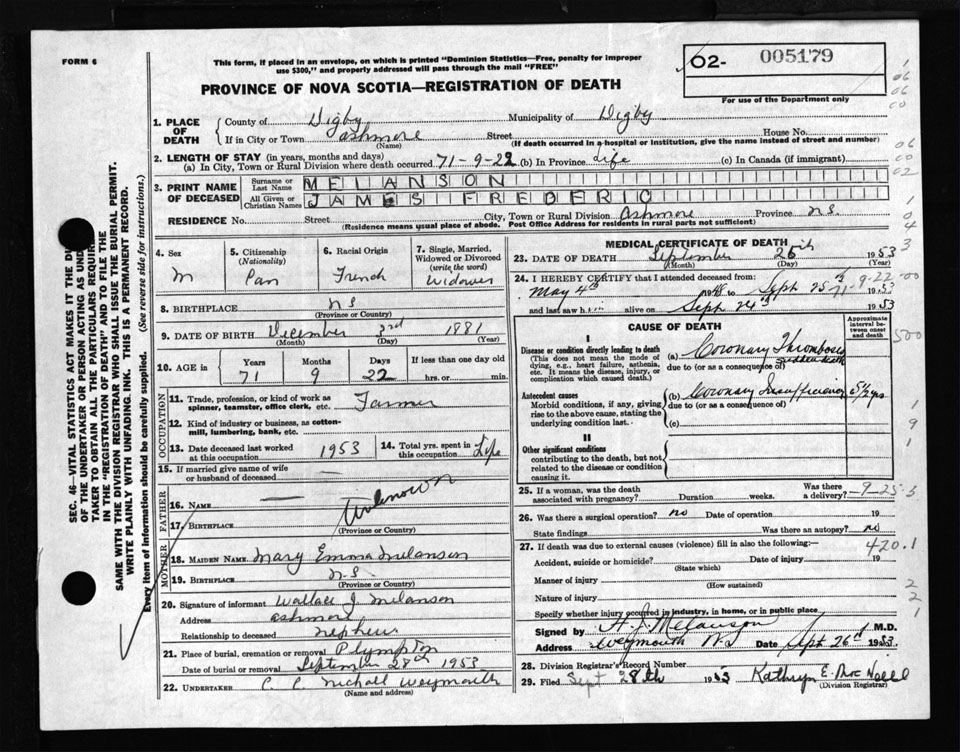 FORM 6
This form, if placed in an envelope, on which is printed "Dominion Statistics—Free, penalty for improper
use $300," and properly addressed will pass through the mail "FREE"
62- 005179
For use of the Department only
PROVINCE OF NOVA SCOTIA—REGISTRATION OF DEATH
1. PLACE OF DEATH
County of Digby Municipality of Digby
If in City or Town Ashmore Street House No.
(Name) (If death occurred in a hospital or institution, give the name instead of street and number)
2. LENGTH OF STAY (in years, months and days)
(a) In City, Town or Rural Division where death occurred 71-9-22 (b) In Province Life (c) In Canada (if immigrant)
3. PRINT NAME OF DECEASED
Surname or Last Name MELANSON
All Given or Christian Names JAMES FREDERIC
RESIDENCE No. Street City, Town or Rural Division Ashmore Province N.S.
(Residence means usual place of abode. Post Office Address for residents in rural parts not sufficient)
4. Sex M
5. Citizenship (Nationality) Can
6. Racial Origin French
7. Single, Married, Widowed or Divorced (write the word) Widower
8. BIRTHPLACE N S
(Province or Country)
9. DATE OF BIRTH December 3rd 1881
(Month) (Day) (Year)
10. AGE in Years Months Days If less than one day old
71 9 22 hrs. or min.
OCCUPATION
11. Trade, profession, or kind of work as spinner, teamster, office clerk, etc. Farmer
12. Kind of industry or business, as cotton-mill, lumbering, bank, etc.
13. Date deceased last worked at this occupation 1953
14. Total yrs. spent in this occupation Life
15. If married give name of wife or husband of deceased
FATHER
16. Name
Unknown
17. Birthplace
(Province or Country)
MOTHER
18. Maiden Name Mary Emma Melanson
19. Birthplace N.S
(Province or Country)
20. Signature of informant Wallace J. Melanson
Address Ashmore
Relationship to deceased nephew
21. Place of burial, cremation or removal Plympton
Date of burial or removal September 28th 1953
22. UNDERTAKER C. P. Nichall Weymouth
(Name and address)
MEDICAL CERTIFICATE OF DEATH
23. DATE OF DEATH September 25th 1953
(Month) (Day)
24. I HEREBY CERTIFY that I attended deceased from:
May 4th 1948 to Sept 25th 1953
71-9-22
and last saw him alive on Sept 24th 1953
CAUSE OF DEATH
Approximate interval between onset and death
I
Disease or condition directly leading to death
(This does not mean the mode of dying, e.g., heart failure, asthenia, etc. It means the disease, injury, or complication which caused death.)
(a) Coronary Thrombosis
sudden death
due to (or as a consequence of)
Antecedent causes
Morbid conditions, if any, giving rise to the above cause, stating the underlying condition last.
(b) Coronary Insufficiency 5½ yrs
due to (or as a consequence of)
(c)
II
Other significant conditions
contributing to the death, but not related to the disease or condition causing it.
25. If a woman, was the death associated with pregnancy? Duration weeks. Was there a delivery?
-9-25-3
26. Was there a surgical operation? no Date of operation 19
State findings Was there an autopsy? no
27. If death was due to external causes (violence) fill in also the following:
420.1
Accident, suicide or homicide? Date of injury 19
(State which)
Manner of injury
(How sustained)
Nature of injury
Specify whether injury occurred in industry, in home, or in public place.
Signed by H. J. Melanson M.D.
Address Weymouth N.S Date Sept 26th 1953.
28. Division Registrar's Record Number
29. Filed Sept 28th 1953 Kathryn E. Mac Neill
(Division Registrar)
SEC. 46—VITAL STATISTICS ACT MAKES IT THE
OF THE UNDERTAKER OR PERSON ACTING AS
TAKER TO OBTAIN ALL THE PARTICULARS
IN THE "REGISTRATION OF DEATH" AND TO FILE THE
SAME WITH THE DIVISION REGISTRAR WHO SHALL ISSUE THE BURIAL PERMIT.
WRITE PLAINLY WITH UNFADING INK. THIS IS A PERMANENT RECORD.
Every item of information should be carefully supplied. (See reverse side for instructions.)